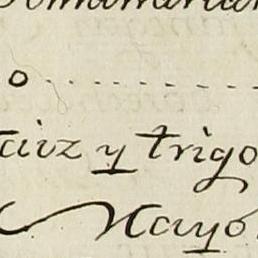 o..........
aiz y trigo
Mayo